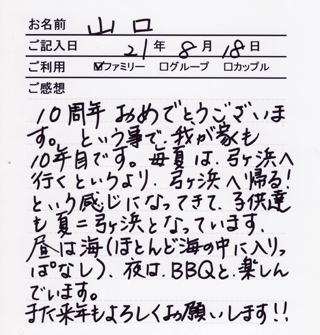 お名前 山口
ご記入日 21年8月18日
ご利用 ☑ファミリー □グループ □カップル
ご感想
10周年おめでとうございま
す。という事で、我が家も
10年目です。毎夏は、弓ヶ浜へ
行くというより、弓ヶ浜へ帰る!
という感じになってきて、子供達
も夏=弓ヶ浜となっています。
昼は海(ほとんど海の中に入りっ
ぱなし)、夜は、BBQと、楽しん
でいます。
また来年もよろしくお願いします!!